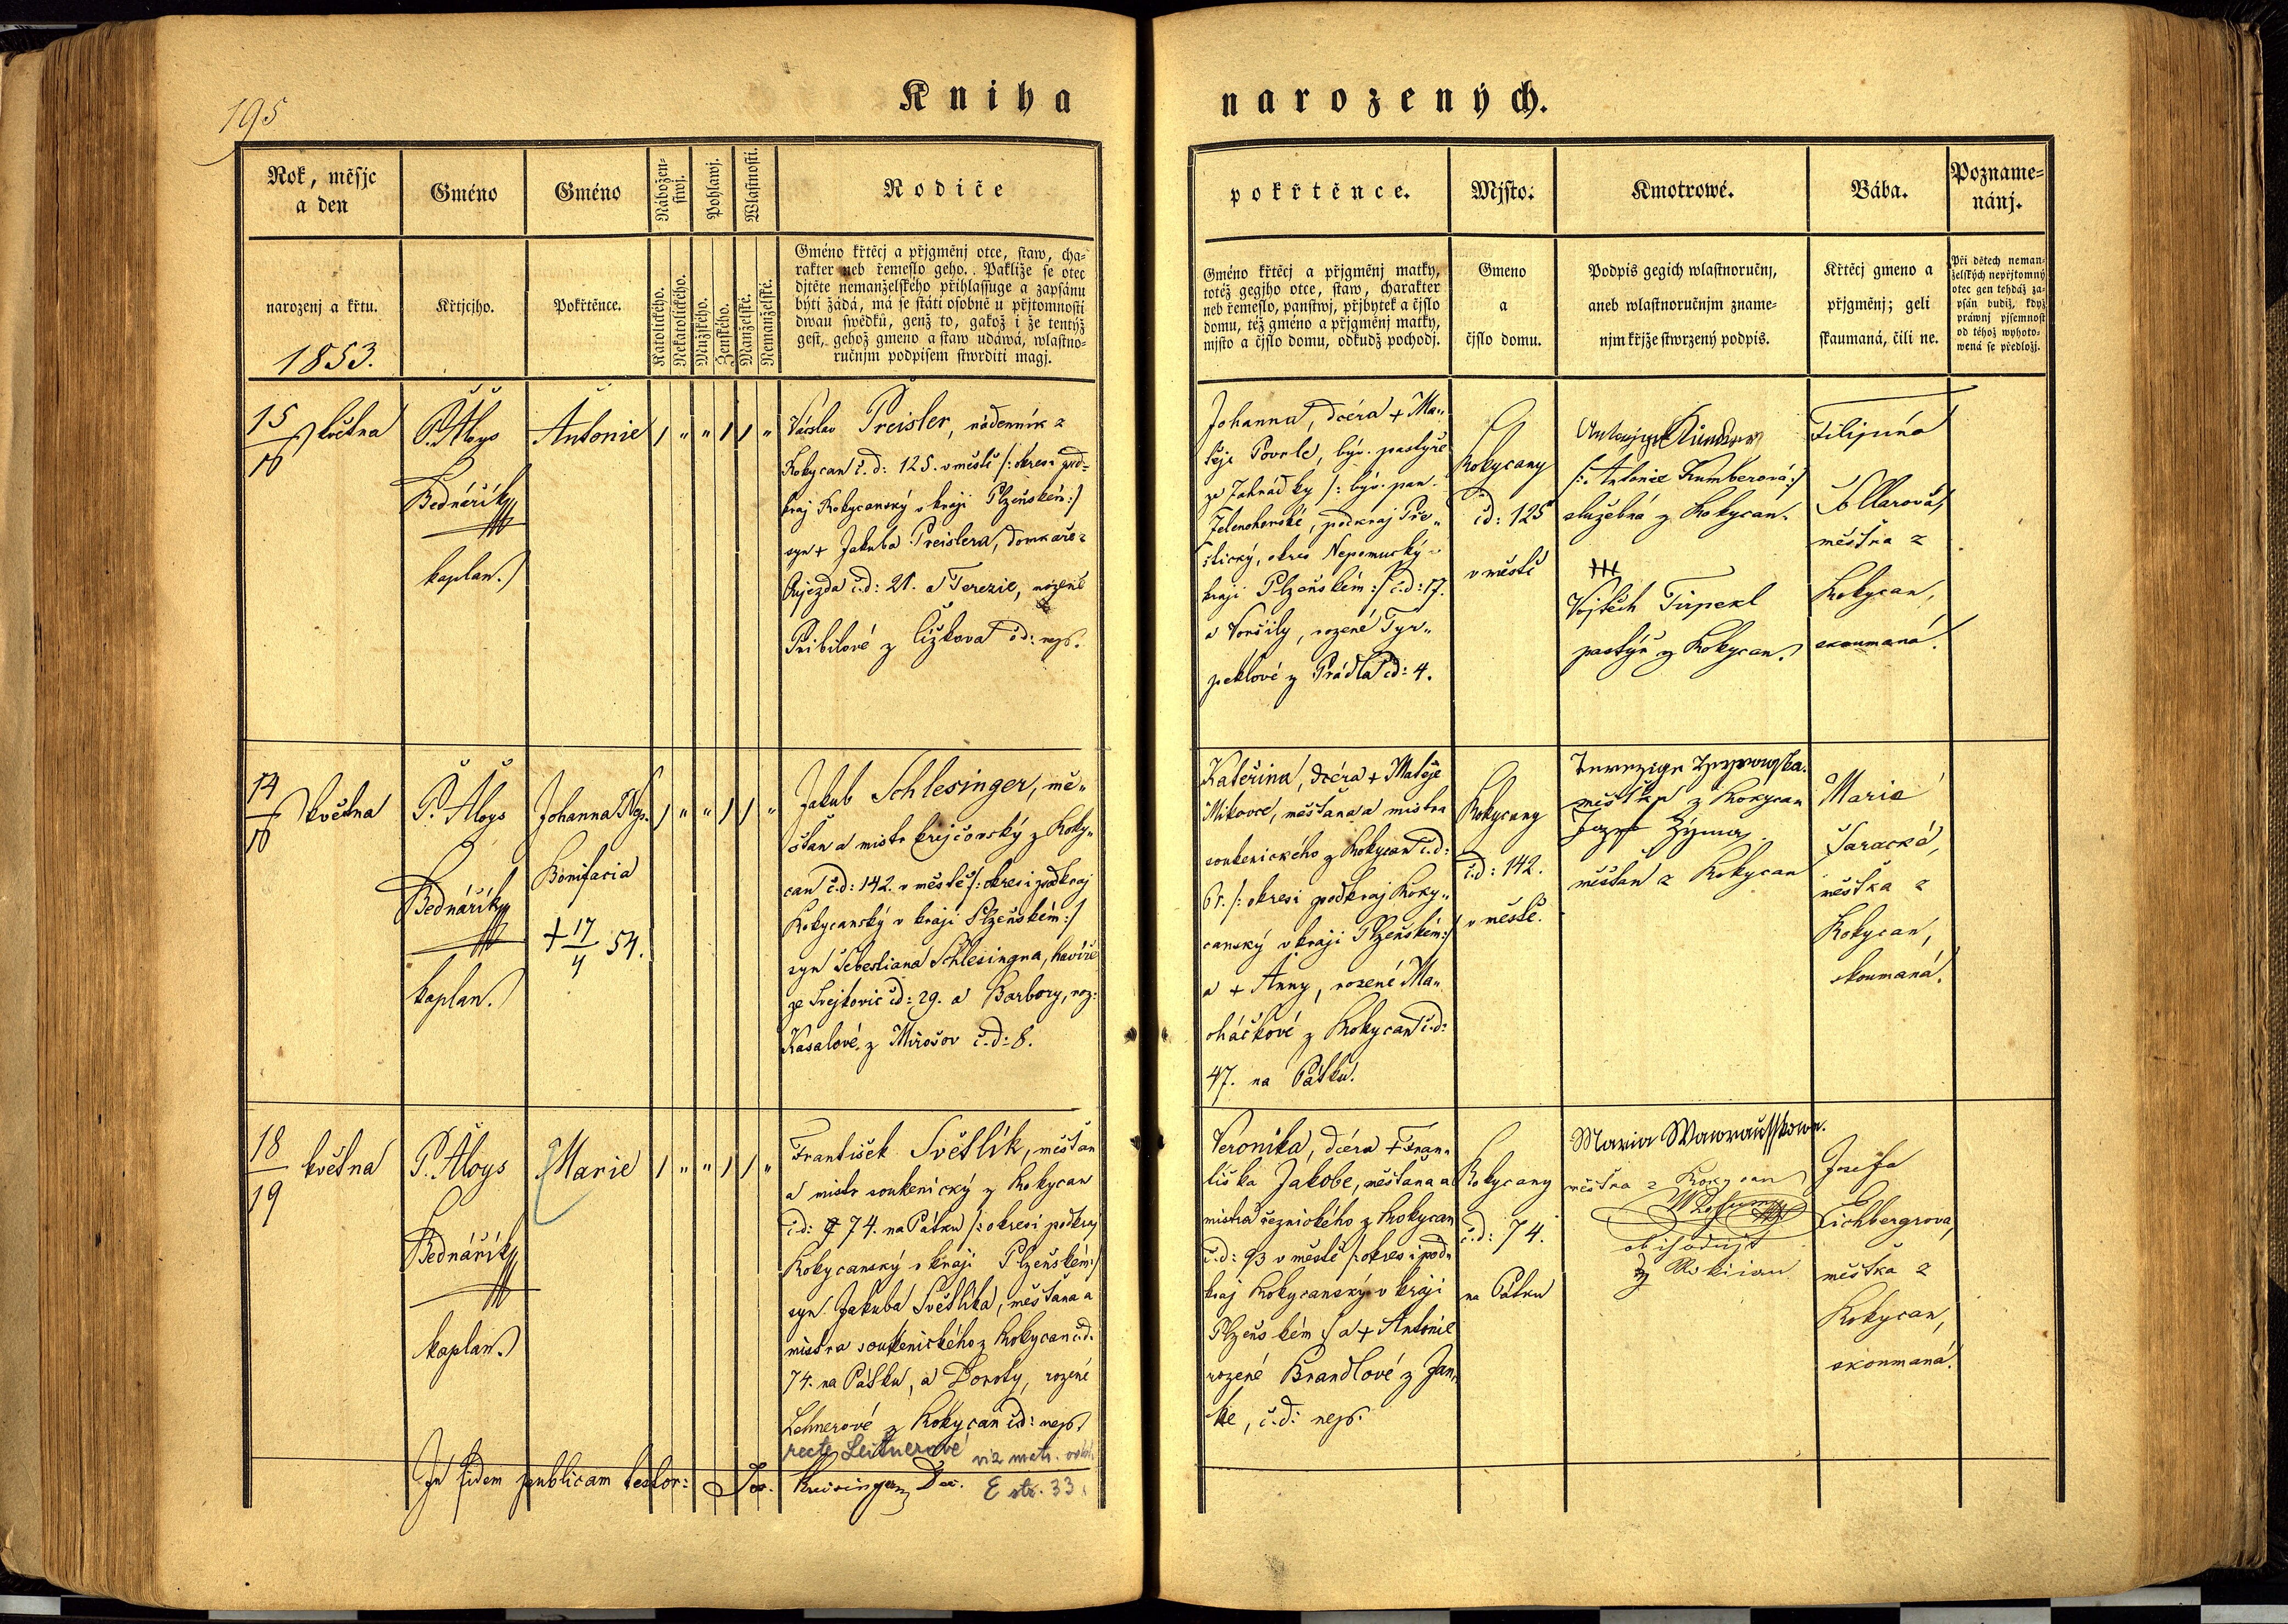 195
Kniha narozených.
Rok, měsjc a den
Gméno
Gméno
Nábožen-
stwj.
Pohlawj.
Wlastnosti.
Rodiče
pokřtěnce.
Mjsto:
Kmotrowé.
Bába.
Pozname-
nánj.
narozenj a křtu.
1853.
Křtjcjho.
Pokřtěnce.
Katolického.
Nekatolického.
Mužského.
Ženského.
Manželské.
Nemanželské.
Gméno křtěcj a přjgměnj otce, staw, cha-
rakter neb řemeslo geho. Pakliže se otec
djtěte nemanželského přihlassuge a zapsánu
býti žádá, má se státi osobně u přjtomnosti
dwau swědků, genž to, gakož i že tentýž
gest, gehož gmeno a staw udáwá, wlastno-
ručnjm podpisem stwrditi magj.
Gméno křtěcj a přjgměnj matky,
totéž gegjho otce, staw, charakter
neb řemeslo, panstwj, přjbytek a čjslo
domu, též gméno a přjgměnj matky,
mjsto a čjslo domu, odkudž pochodj.
Gmeno
a
čjslo domu.
Podpis gegich wlastnoručnj,
aneb wlastnoručnjm zname-
njm křjže stwrzený podpis.
Křtěcj gmeno a
přjgměnj; geli
skaumaná, čili ne.
Při dětech neman-
želských nepřjtomný
otec gen tehdáž za-
psán budiž, když
práwnj pjsemnost
od téhož wyhoto-
wená se předložj.
15
16 května
P. Aloys
Bednářík
kaplan.
Antonie
Václav Preisler, nádenník z
Rokycan č.d: 125. v městě /: okres i pod-
kraj Rokycanský v kraji Plzeňském :/
syn + Jakuba Preislera, domkáře z
Ojezda č.d: 21. a Terezie, rozené
Pribilové z Cižkova č.d: nejs.
Johanna, dcéra + Ma-
těje Povrle, býv. pastýře
ze Zahrádky /: býv. pan.
Zelenohorské, podkraj Pře-
štický, okres Nepomucký v
kraji Plzeňském :/ č.d: 17.
a Voršily, rozené Tyr-
peklové z Prádla č.d: 4.
Rokycany
č.d: 125
v městě
/: Antonie Kumberová :/
služebná z Rokycan.
+++
Vojtěch Tirpekl
pastýř z Rokycan.
Filipína
Šollarová,
měštka z
Rokycan,
skoumaná.
14
16 května
P. Aloys
Bednářík
kaplan.
Johanna
Bonifacia
+ 17/4 54.
Jakub Schlesinger, mě-
šťan a mistr krejčovský z Roky-
can č.d: 142. v městě /: okres i podkraj
Rokycanský v kraji Plzeňském :/
syn Šebestiana Schlesingra, havíře
ze Svejkovic č.d: 29. a Barbory, roz:
Kasalové z Mirošov č.d: 8.
Kateřina, dcéra + Matěje
Mikovce, měšťana a mistra
soukenického z Rokycan č.d:
/: okres i podkraj Roky-
canský v kraji Plzeňském :/
a + Anny, rozené Ma-
cháčkové z Rokycan č.d:
47. na Pátku.
Rokycany
č.d: 142.
v městě.
měštka z Rokycan
Jozef Zýma
měšťan z Rokycan
Marie
Saracká,
měštka z
Rokycan,
skoumaná.
18
19 května
P. Aloys
Bednářík
kaplan.
Marie
František Světlík, měšťan
a mistr soukenický z Rokycan
č.d: 74. na Pátku /: okres i podkraj
Rokycanský v kraji Plzeňském :/
syn Jakuba Světlíka, měšťana a
mistra soukenického z Rokycan č.d.
74. na Pátku, a Doroty, rozené
Lehnerové z Rokycan č.d: nejs.
recte Leitnerové viz matr. oddal.
E str. 33.
Veronika, dcéra + Fran-
tiška Jakobe, měšťana a
mistra řeznického z Rokycan
č.d: 93 v městě /: okres i pod-
kraj Rokycanský v kraji
Plzeňském :/ a + Antonie
rozené Brandlové z Jan-
ke, č.d: nejs.
Rokycany
č.d: 74.
na Pátku
Maria Wawrausskowa.
měštka z Rokycan
Josefa
Eichbergrova,
měštka z
Rokycan,
skoumaná.
In fidem publicam testor: Jos. Kreisinger, Dec.